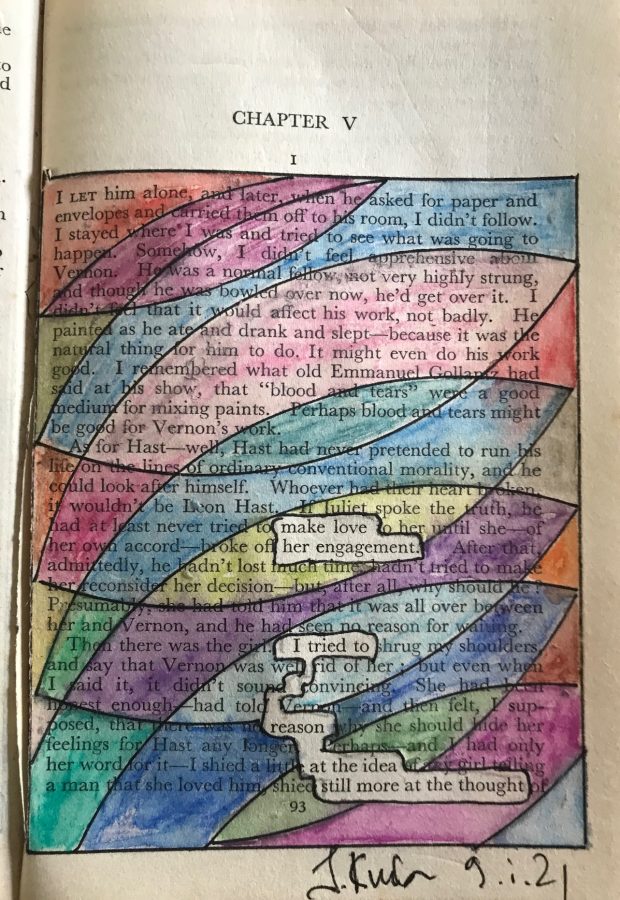 CHAPTER V
I
I LET him alone, and later, when he asked for paper and
envelopes and carried them off to his room, I didn't follow.
I stayed where I was and tried to see what was going to
happen. Somehow, I didn't feel apprehensive about
Vernon. He was a normal fellow, not very highly strung,
and though he was bowled over now, he'd get over it. I
didn't feel that it would affect his work, not badly. He
painted as he ate and drank and slept—because it was the
natural thing for him to do. It might even do his work
good. I remembered what old Emmanuel Gollantz had
said at his show, that “blood and tears” were a good
medium for mixing paints. Perhaps blood and tears might
be good for Vernon's work.
As for Hast—well, Hast had never pretended to run his
life on the lines of ordinary conventional morality, and he
could look after himself. Whoever had their heart broken,
it wouldn't be Leon Hast. If Juliet spoke the truth, he
had at least never tried to make love to her until she—of
her own accord—broke off her engagement. After that,
admittedly, he hadn't lost much time, hadn't tried to make
her reconsider her decision—but, after all, why should he?
Presumably, she had told him that it was all over between
her and Vernon, and he had seen no reason for waiting.
Then there was the girl. I tried to shrug my shoulders
and say that Vernon was well rid of her; but even when
I said it, it didn't sound convincing. She had been
honest enough—had told Vernon—and then felt, I sup-
posed, that there was no reason why she should hide her
feelings for Hast any longer. Perhaps—and I had only
her word for it—I shied a little at the idea of any girl telling
a man that she loved him, shied still more at the thought of
93
9.i.21